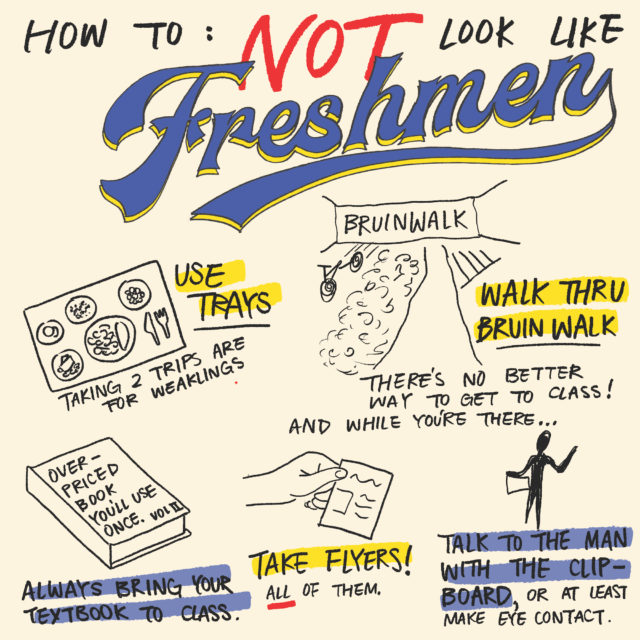 HOW TO: NOT LOOK LIKE
Freshmen
BRUINWALK
USE
TRAYS
TAKING 2 TRIPS ARE
FOR WEAKLINGS
WALK THRU
BRUIN WALK
THERE'S NO BETTER
WAY TO GET TO CLASS!
AND WHILE YOU'RE THERE...
OVER-
PRICED
BOOK
YOU'LL USE
ONCE. VOL II
ALWAYS BRING YOUR
TEXTBOOK TO CLASS.
TAKE FLYERS!
ALL OF THEM.
TALK TO THE MAN
WITH THE CLIP-
BOARD, OR AT LEAST
MAKE EYE CONTACT.